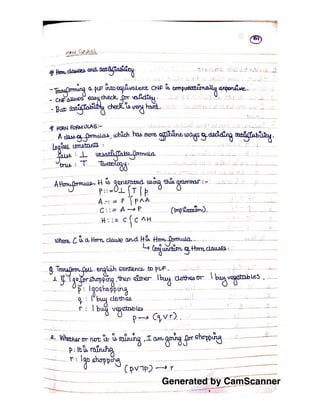 61
# Horn clauses and satisfiability
- Transforming a PLF into equivalent CNF is computationally expensive.
- CNF allows easy check for validity
- But satisfiability check is very hard.
# HORN FORMULAS:-
A class of formulas, which has more efficient ways of deciding satisfiability.
logical constants:
false : ⊥ unsatisfiable formula
true : T Tautology.
A Horn formula H is generated using this grammar :-
P ::= ⊥ | T | p
A ::= P | P ∧ A
C ::= A → P (implication).
H ::= C | C ∧ H
where C is a Horn clause and H is Horn formula.
↳ Conjunction of Horn clauses.
Q. Transform foll. english sentence to PLF.
1. If I go for shopping, then either I buy clothes or I buy vegetables.
p : I go shopping
q : I buy clothes
r : I buy vegetables
p → (q ∨ r).
2. Whether or not it is raining, I am going for shopping
p : It is raining
r : I go shopping
(p ∨ ¬p) → r
Generated by CamScanner